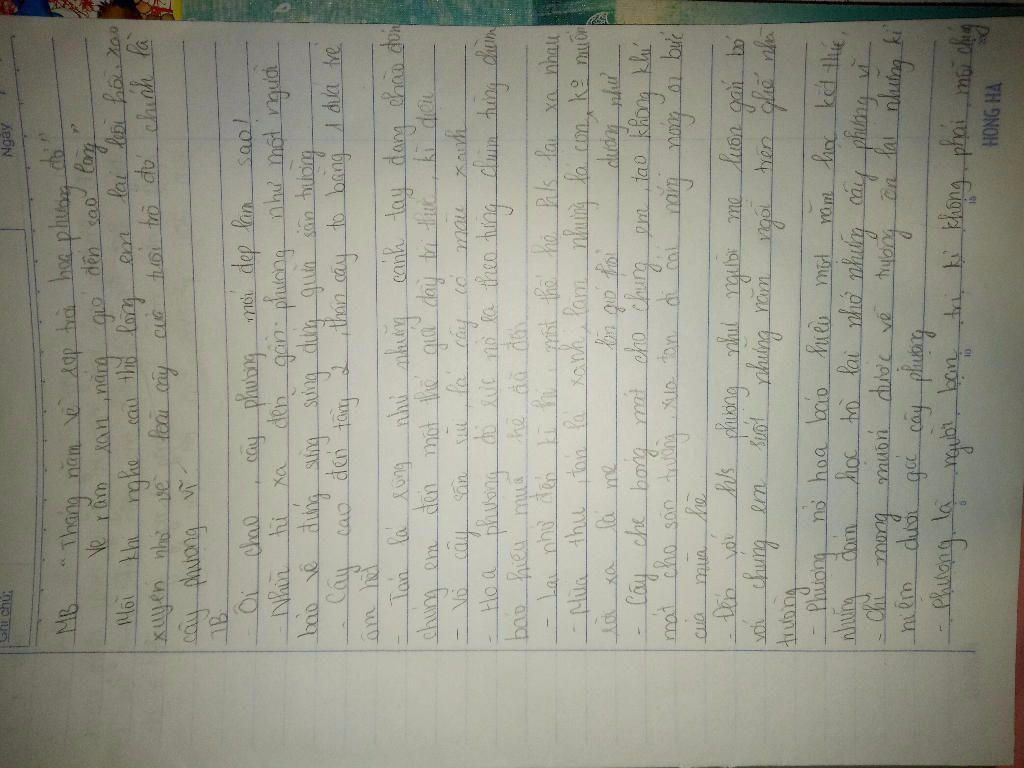 Ghi chú:
Ngày
MB "Tháng năm về rợp trời hoa phượng đỏ
Ve râm ran nắng gió đến sao lòng"
Mỗi khi nghe câu thơ lòng em lại bồi hồi xao
xuyến nhớ về loài cây của tuổi trò đó chính là
cây phượng vĩ
TB:
- Ôi chao, cây phượng mới đẹp làm sao!
- Nhìn từ xa đến gần: phượng như một người
bảo vệ đứng sừng sững đứng giữa sân trường
- Cây cao đến tầng 2, thân cây to bằng 1 đứa trẻ
ôm hết
- Tán lá rộng như những cánh tay đang chào đón
chúng em đến một thế giới đầy tri thức, kì diệu
- Vỏ cây sần sùi, lá cây có màu xanh
- Hoa phượng đỏ rực nở la theo từng chùm từng chùm
báo hiệu mùa hè đã đến
- Lại nhớ đến kì thi, một thế hệ hs lại xa nhau
- Mùa thu, tán lá xanh, lắm nhưng lá con, ko muốn
rời xa lá mẹ
- Cây che bóng mát cho chúng em, tạo không khí
mát cho sân trường, xua tan đi cái nóng nung oi bức
của mùa hè
- Đến với hs phượng như người mẹ luôn gắn bó
với chúng em suốt những năm ngồi trên ghế nhà
trường
- Phượng nở hoa báo hiệu một năm học kết thúc,
những đám học trò lại nhớ những cây phượng vĩ
- Chỉ mong muốn được về trường ôn lại những kỉ
niệm dưới gốc cây phượng
- Phượng là người bạn tri kỉ không phai, mỗi chúng
HONG HA